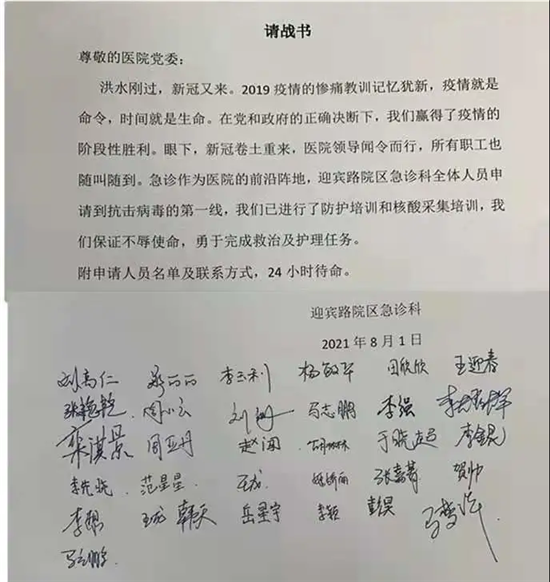 请战书
尊敬的医院党委：
洪水刚过，新冠又来。2019 疫情的惨痛教训记忆犹新，疫情就是
命令，时间就是生命。在党和政府的正确决断下，我们赢得了疫情的
阶段性胜利。眼下，新冠卷土重来，医院领导闻令而行，所有职工也
随叫随到。急诊作为医院的前沿阵地，迎宾路院区急诊科全体人员申
请到抗击病毒的第一线，我们已进行了防护培训和核酸采集培训，我
们保证不辱使命，勇于完成救治及护理任务。
附申请人员名单及联系方式，24 小时待命。
迎宾路院区急诊科
2021 年 8 月 1 日
刘高仁 李玉利 杨敏平 田欣欣 王迎春
张艳乾 周小云 马志鹏 李强
栾淇景 周亚丹 赵阔 胡林林 于晓超 李锟
范星星 王龙 贺帅
王龙 韩天 岳星宇 李颖 彭昊